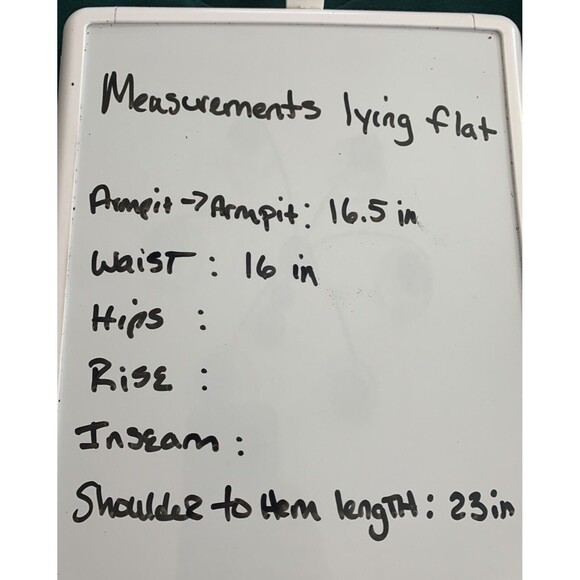 Measurements lying flat
Armpit → Armpit: 16.5 in
Waist : 16 in
Hips :
Rise :
Inseam :
Shoulder to Hem length : 23 in